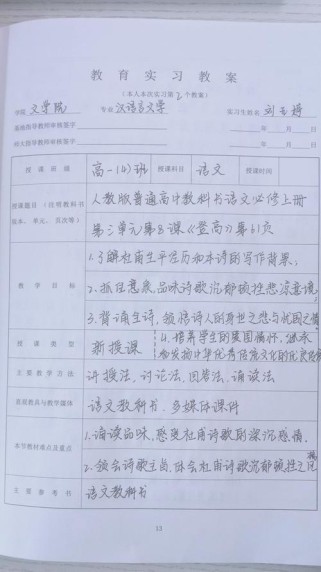 教育实习教案
（本人本次实习第2个教案）
学院 文学院 专业 汉语言文学 实习生姓名
基地指导教师审核签字 年 月 日
校大指导教师审核签字 年 月 日
授课班级 高一(4)班 授课科目 语文 授课时间
授课题目（注明教科书版本、单元、页次等） 人教版普通高中教科书语文必修上册
第三单元第8课《登高》第61页
教学目标 1.了解杜甫生平经历和本诗的写作背景；
2.抓住意象，品味诗歌沉郁顿挫悲凉意境；
3.背诵全诗，领悟诗人的身世之悲与忧国之情
4.培养学生的爱国情怀，继承和发扬中华优秀传统文化的
授课类型 新授课
主要教学方法 讲授法，讨论法，问答法，诵读法
直观教具与教学媒体 语文教科书、多媒体课件
本节教材难点及重点 1.诵读品味，感受杜甫诗歌深沉感情。
2.领会诗歌主旨，体会杜甫诗歌沉郁顿挫之风格
主要参考书 语文教科书
13